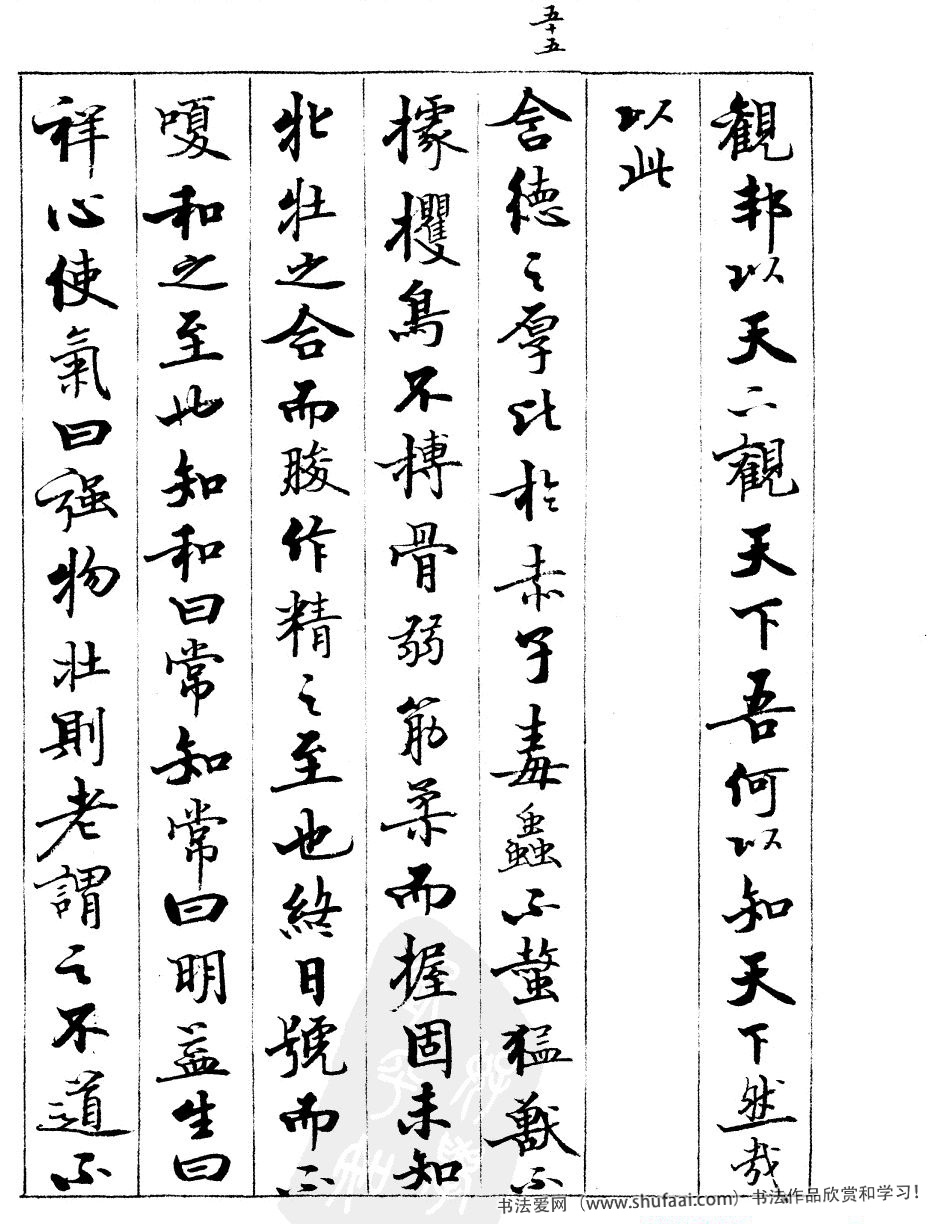 觀邦以天下觀天下吾何以知天下然哉
以此
五十五
含德之厚比於赤子毒蟲不螫猛獸不
據攫鳥不搏骨弱筋柔而握固未知
牝牡之合而朘作精之至也終日號而不
嗄和之至也知和曰常知常曰明益生曰
祥心使氣曰强物壯則老謂之不道不
书法爱网（www.shufaai.com）-书法作品欣赏和学习！